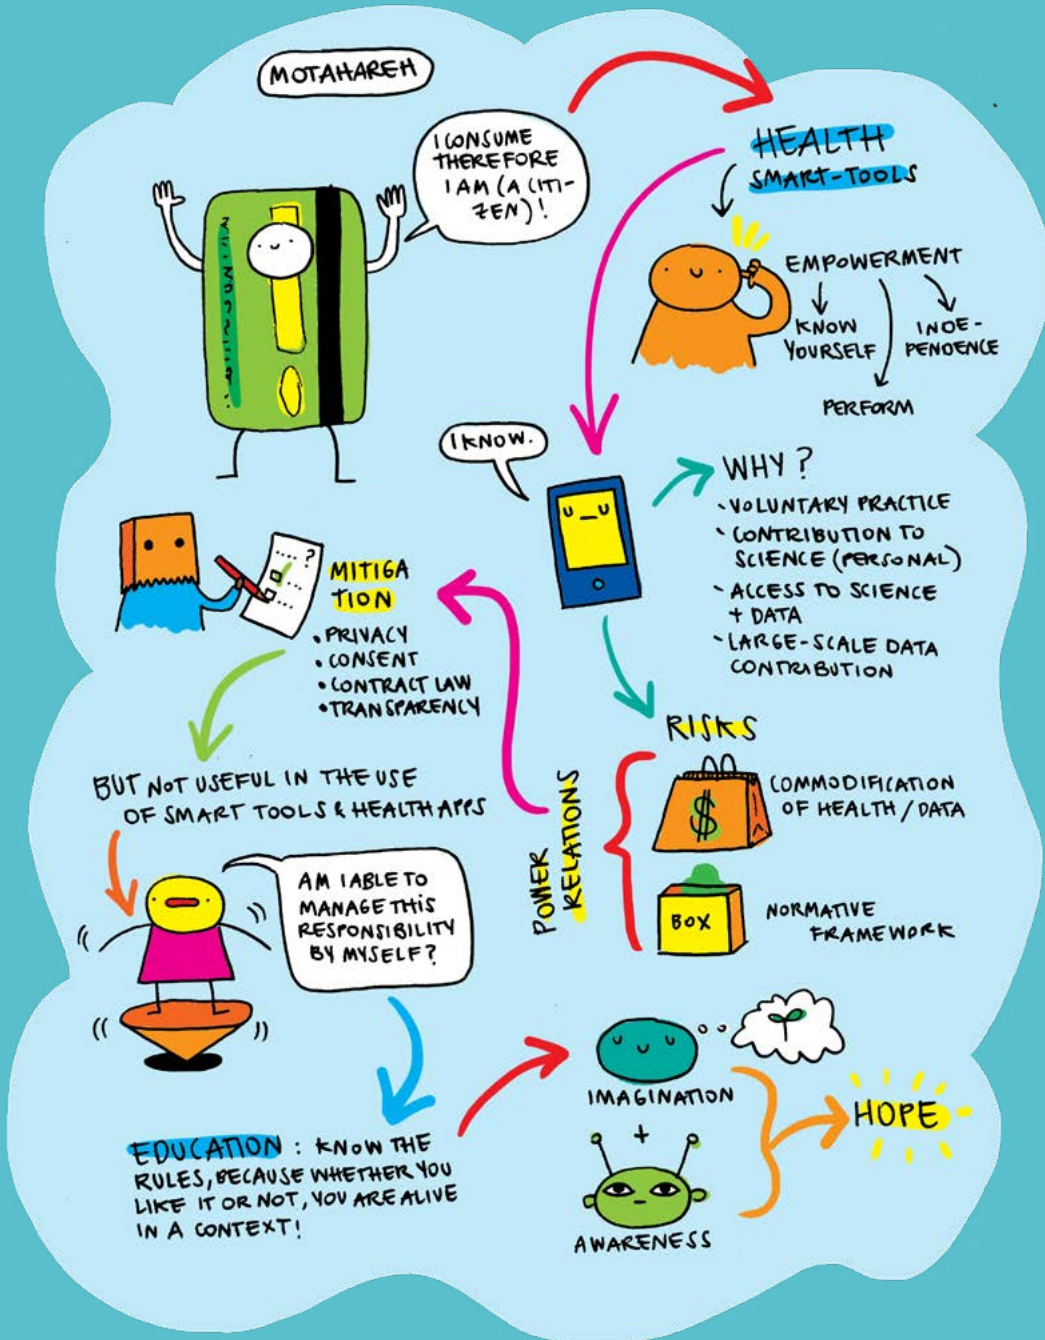 MOTAHAREH
I CONSUME
THEREFORE
I AM (A CITI-
ZEN)!
HEALTH
SMART-TOOLS
EMPOWERMENT
KNOW
YOURSELF
INDE-
PENDENCE
PERFORM
I KNOW.
WHY?
- VOLUNTARY PRACTICE
- CONTRIBUTION TO
SCIENCE (PERSONAL)
- ACCESS TO SCIENCE
+ DATA
- LARGE-SCALE DATA
CONTRIBUTION
RISKS
POWER
RELATIONS
$
COMMODIFICATION
OF HEALTH / DATA
BOX
NORMATIVE
FRAMEWORK
.... ?
...
...
MITIGA
TION
• PRIVACY
• CONSENT
• CONTRACT LAW
• TRANSPARENCY
BUT NOT USEFUL IN THE USE
OF SMART TOOLS & HEALTH APPS
AM I ABLE TO
MANAGE THIS
RESPONSIBILITY
BY MYSELF?
EDUCATION : KNOW THE
RULES, BECAUSE WHETHER YOU
LIKE IT OR NOT, YOU ARE ALIVE
IN A CONTEXT!
IMAGINATION
+
AWARENESS
HOPE